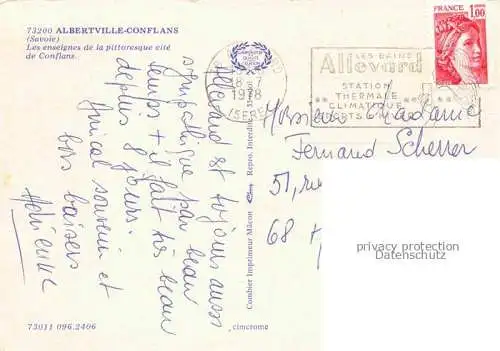 73200 ALBERTVILLE-CONFLANS
(Savoie)
Les enseignes de la pittoresque cité
de Conflans.
Allevard est toujours aussi
sympathique par beau
temps + il fait très beau
depuis 8 jours.
Amical souvenir et
bons baisers
Adrienne
73011 096.2406
Combier Imprimeur Mâcon
Repro. Interdite
cimcrome
18-7
1978
(ISERE)
LES BAINS
Allevard
STATION
THERMALE
CLIMATIQUE
FRANCE
1,00
Monsieur Madame
Fernand Scherrer
51, rue
68
privacy protection
(AKPool GmbH)